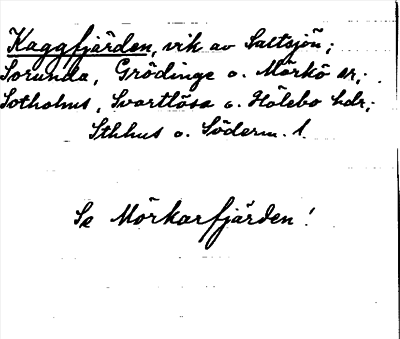 Kaggfjärden, vik av Saltsjön;
Sorunda, Grödinge o. Mörkö sr;
Sotholms, Svartlösa o. Hölebo hdr;
Sthlms o. Söderm. l.
Se Mörkarfjärden!